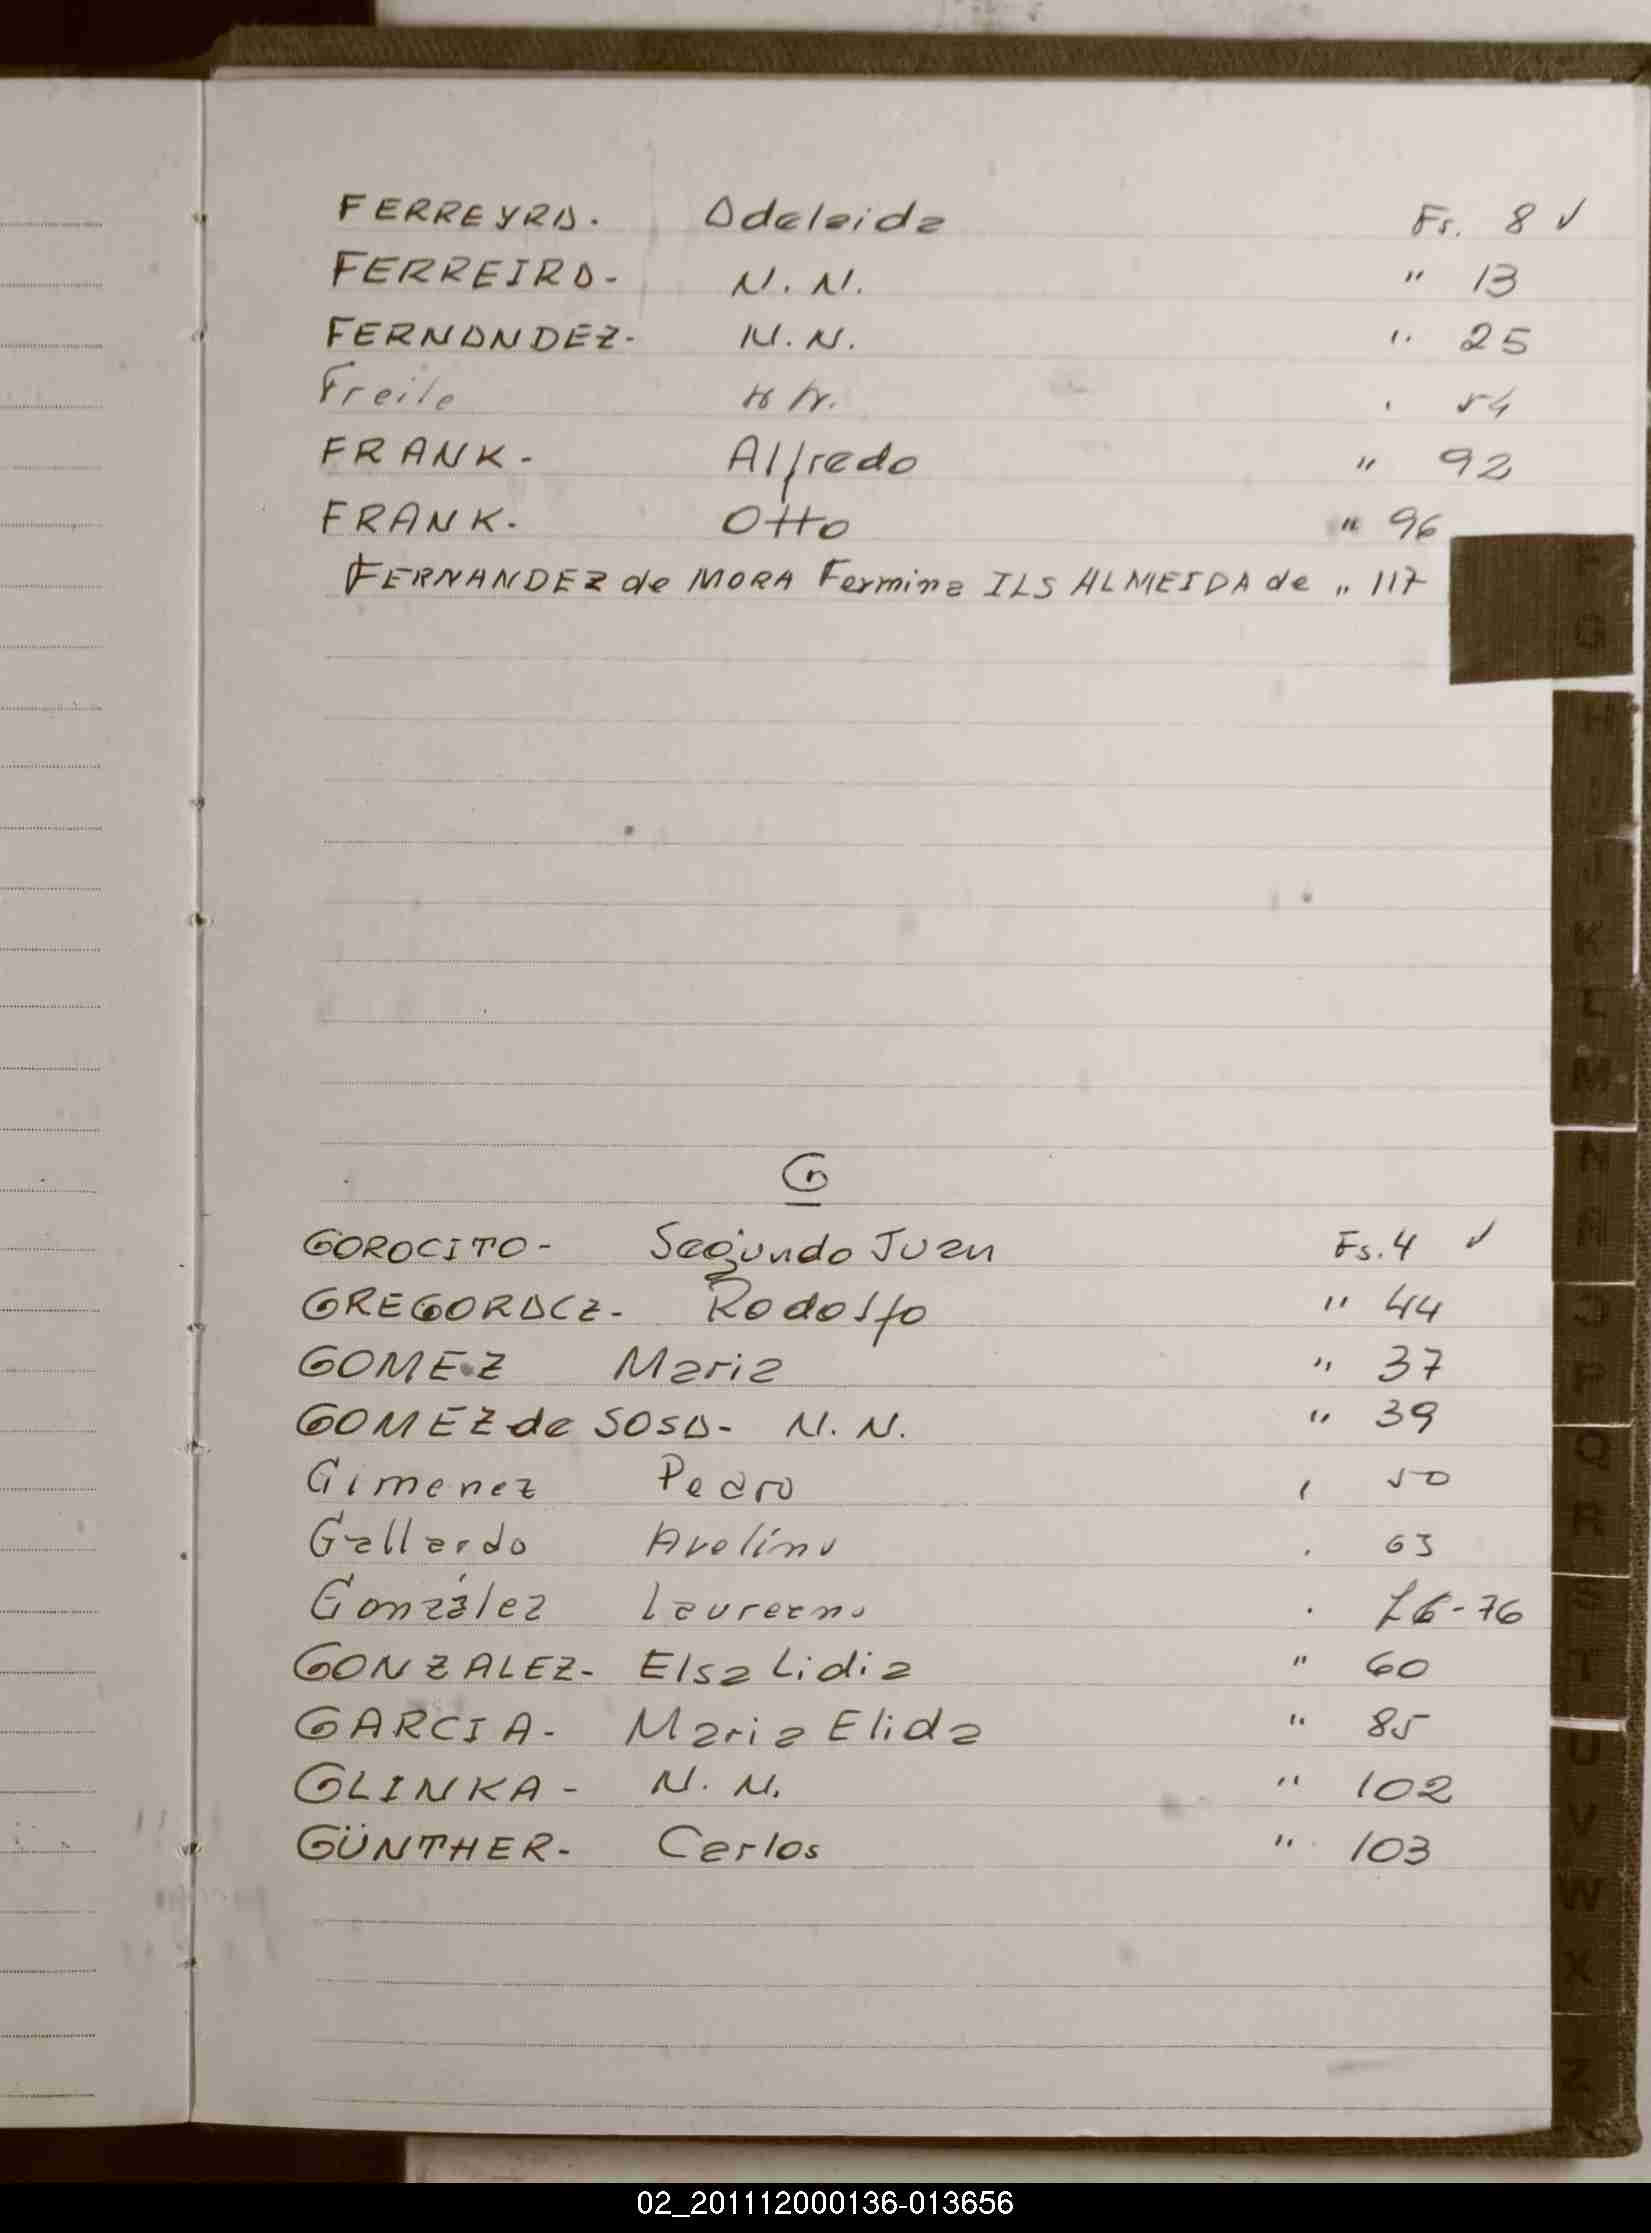 FERREYRA. Adelaida Fs. 8 ✓
FERREIRA- N. N. " 13
FERNANDEZ- N. N. " 25
Freile N N. " 54
FRANK- Alfredo " 92
FRANK. Otto " 96
FERNANDEZ de MORA Fermina ILS ALMEIDA de " 117
G
GOROCITO- Segundo Juan Fs. 4 ✓
GREGORACZ- Rodolfo " 44
GOMEZ Maria " 37
GOMEZ de SOSA- N. N. " 39
Gimenez Pedro " 50
Gallardo Avelino " 63
González Laureano " -76
GONZALEZ- Elsa Lidia " 60
GARCIA- Maria Elida " 85
GLINKA- N. N. " 102
GÜNTHER- Carlos " 103
F
G
H
I
J
K
L
M
N
Ñ
O
P
Q
R
S
T
U
V
W
X
Z
02_201112000136-013656